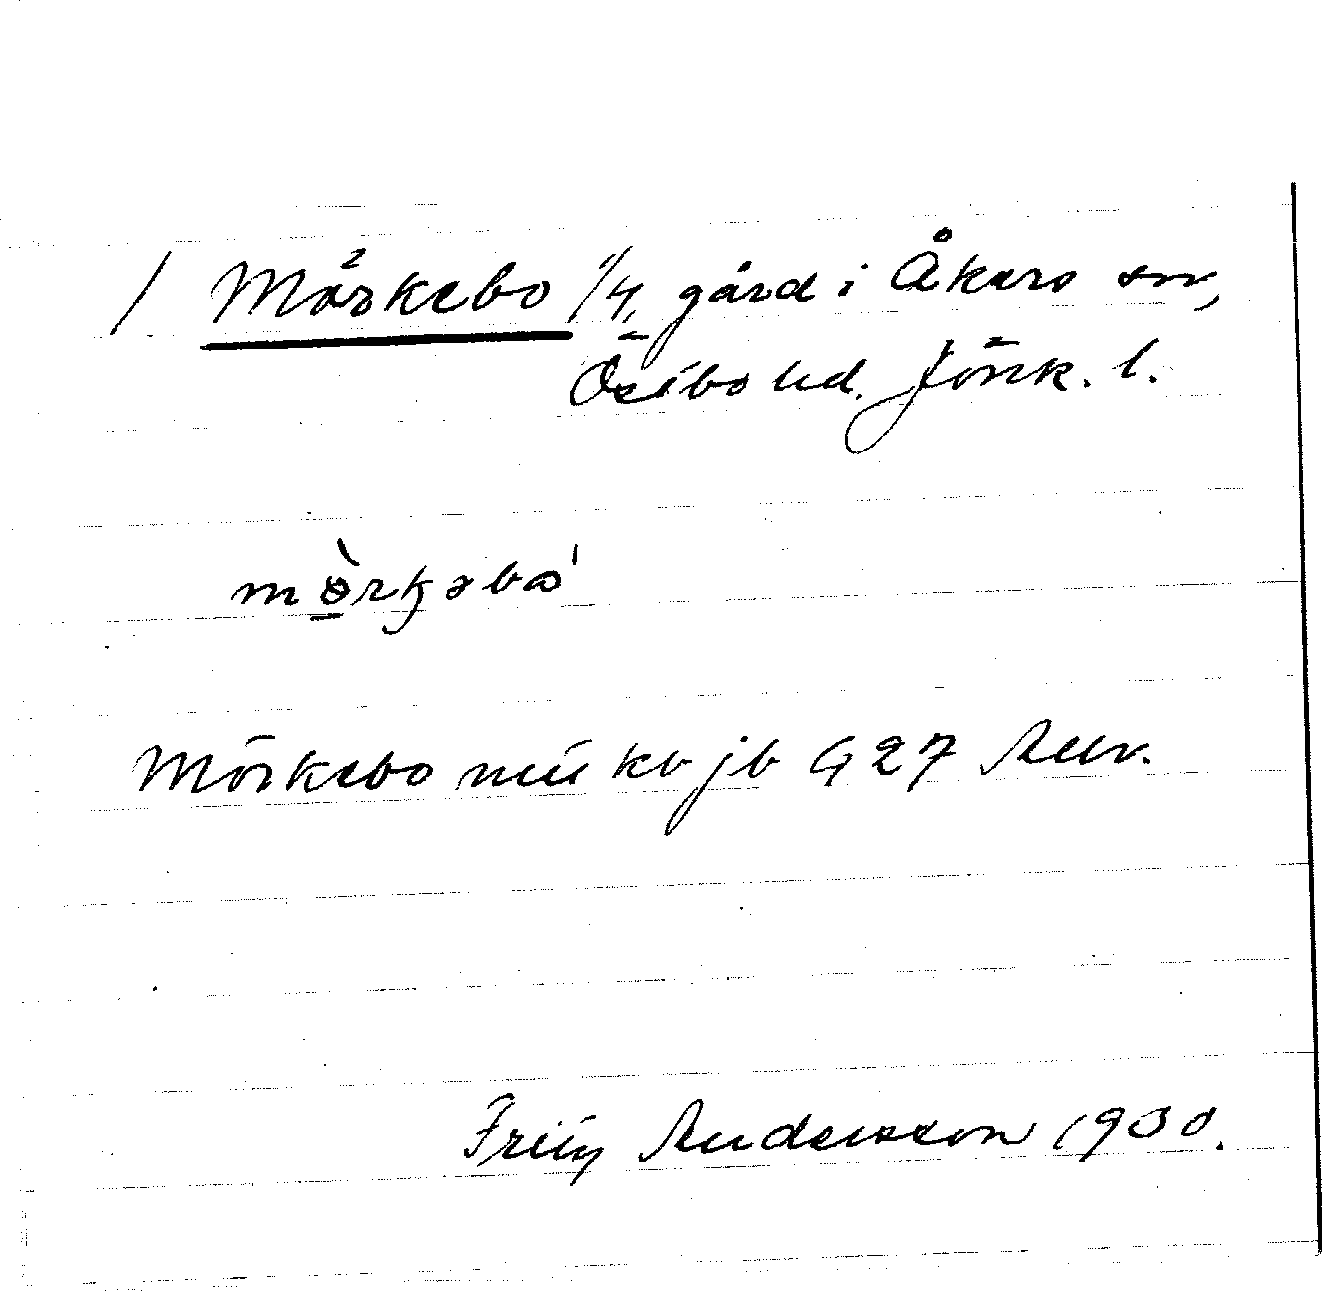 / Mörkebo 1/4, gård i Åkers sn,
Östbo hd. Jönk. l.
mö̀rkəbo'
Mörkebo kb jb G 27
Fritz Andersson 1930.